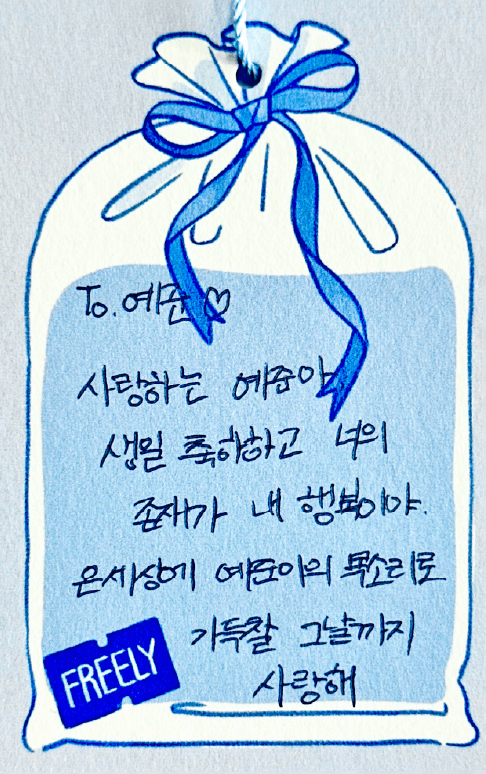 To. 예준♡
사랑하는 예준아
생일 축하하고 너의
존재가 내 행복이야.
온세상에 예준이의 목소리로
가득찰 그날까지
사랑해
FREELY